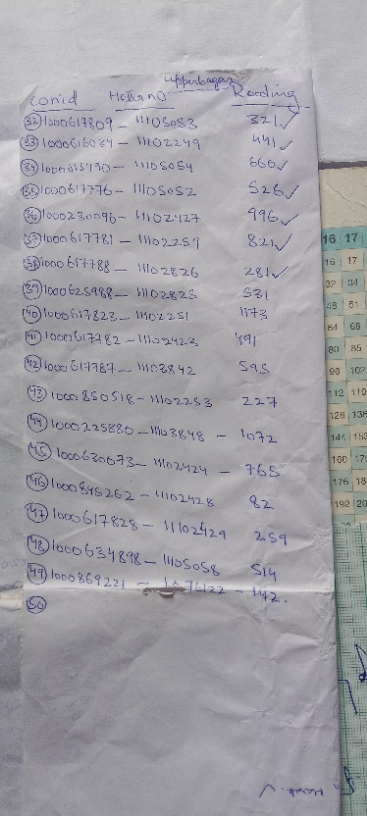 Upperbagan
Con'id Meter no Reading
32 1000617809 - 11105053 321 ✓
33 1000615034 - 11102249 441 ✓
34 1000615490 - 11105054 660 ✓
35 1000617776 - 11105052 526 ✓
36 1000230096 - 11102427 996 ✓
37 1000617781 - 11102259 821 ✓
38 1000617788 - 11102826 281 ✓
39 1000625988 - 11102825 531
40 1000617823 - 11102251 1173
41 1000617782 - 11102423 491
42 1000617787 - 11103842 595
43 1000850518 - 11102253 227
44 1000225880 - 11103848 - 1072
45 1000630073 - 11102424 - 765
46 1000845262 - 11102428 82
47 1000617828 - 11102429 259
48 1000634898 - 11105058 514
49 1000869221 - 76122 - 142.
50
16 17
16 17
32 34
48 51
64 68
80 85
96 102
112 119
128 136
144 153
160 170
176 18
192 20